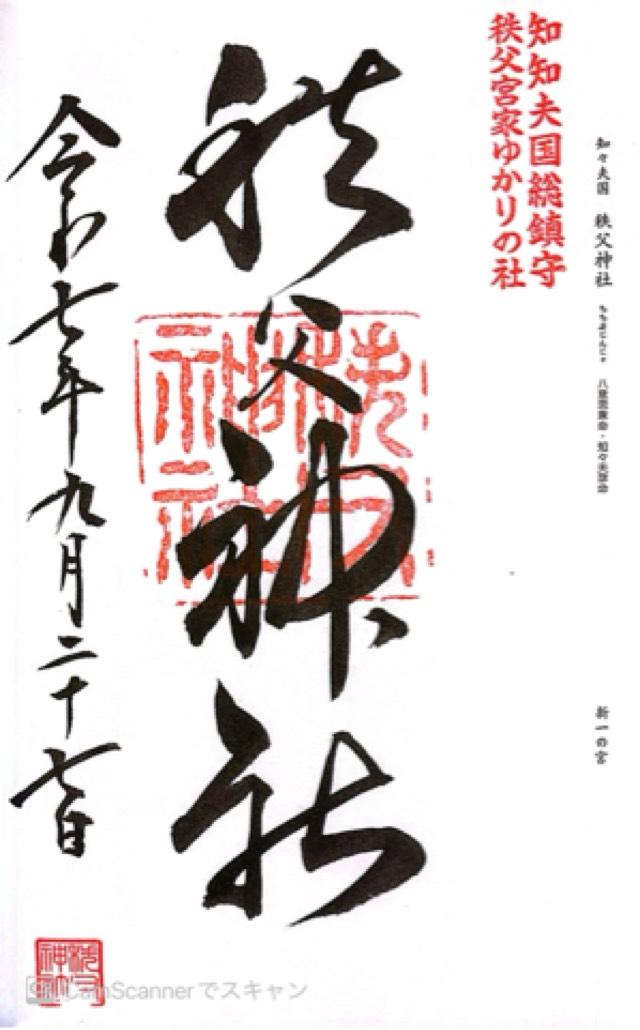 知々夫国 秩父神社 ちちぶじんじゃ 八意思兼命・知々夫彦命 新一の宮
知知夫国総鎮守
秩父宮家ゆかりの社
秩父神社
令和七年九月二十七日
秩父神社
CS CamScannerでスキャン